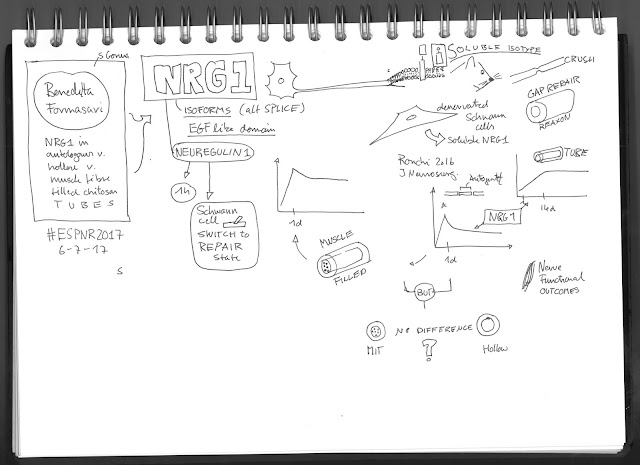 S Genus
Benedetta
Formasari
NRG1 in
autologous v.
hollow v.
muscle fibre
filled chitosan
TUBES
#ESPNR2017
6-7-17
S
NRG1
ISOFORMS (alt SPLICE)
EGF like domain
NEUREGULIN1
1h
Schwann
cell
SWITCH to
REPAIR
State
1d
MUSCLE
FILLED
SOLUBLE ISOTYPE
CRUSH
denervated
Schwann
cells
soluble NRG1
GAP REPAIR
REAXON
Ronchi 2016
J Neurosurg.
Autograft
TUBE
NRG1
1d
14d
BUT
NO DIFFERENCE
MIT
?
Hollow
Nerve
Functional
OUTCOMES